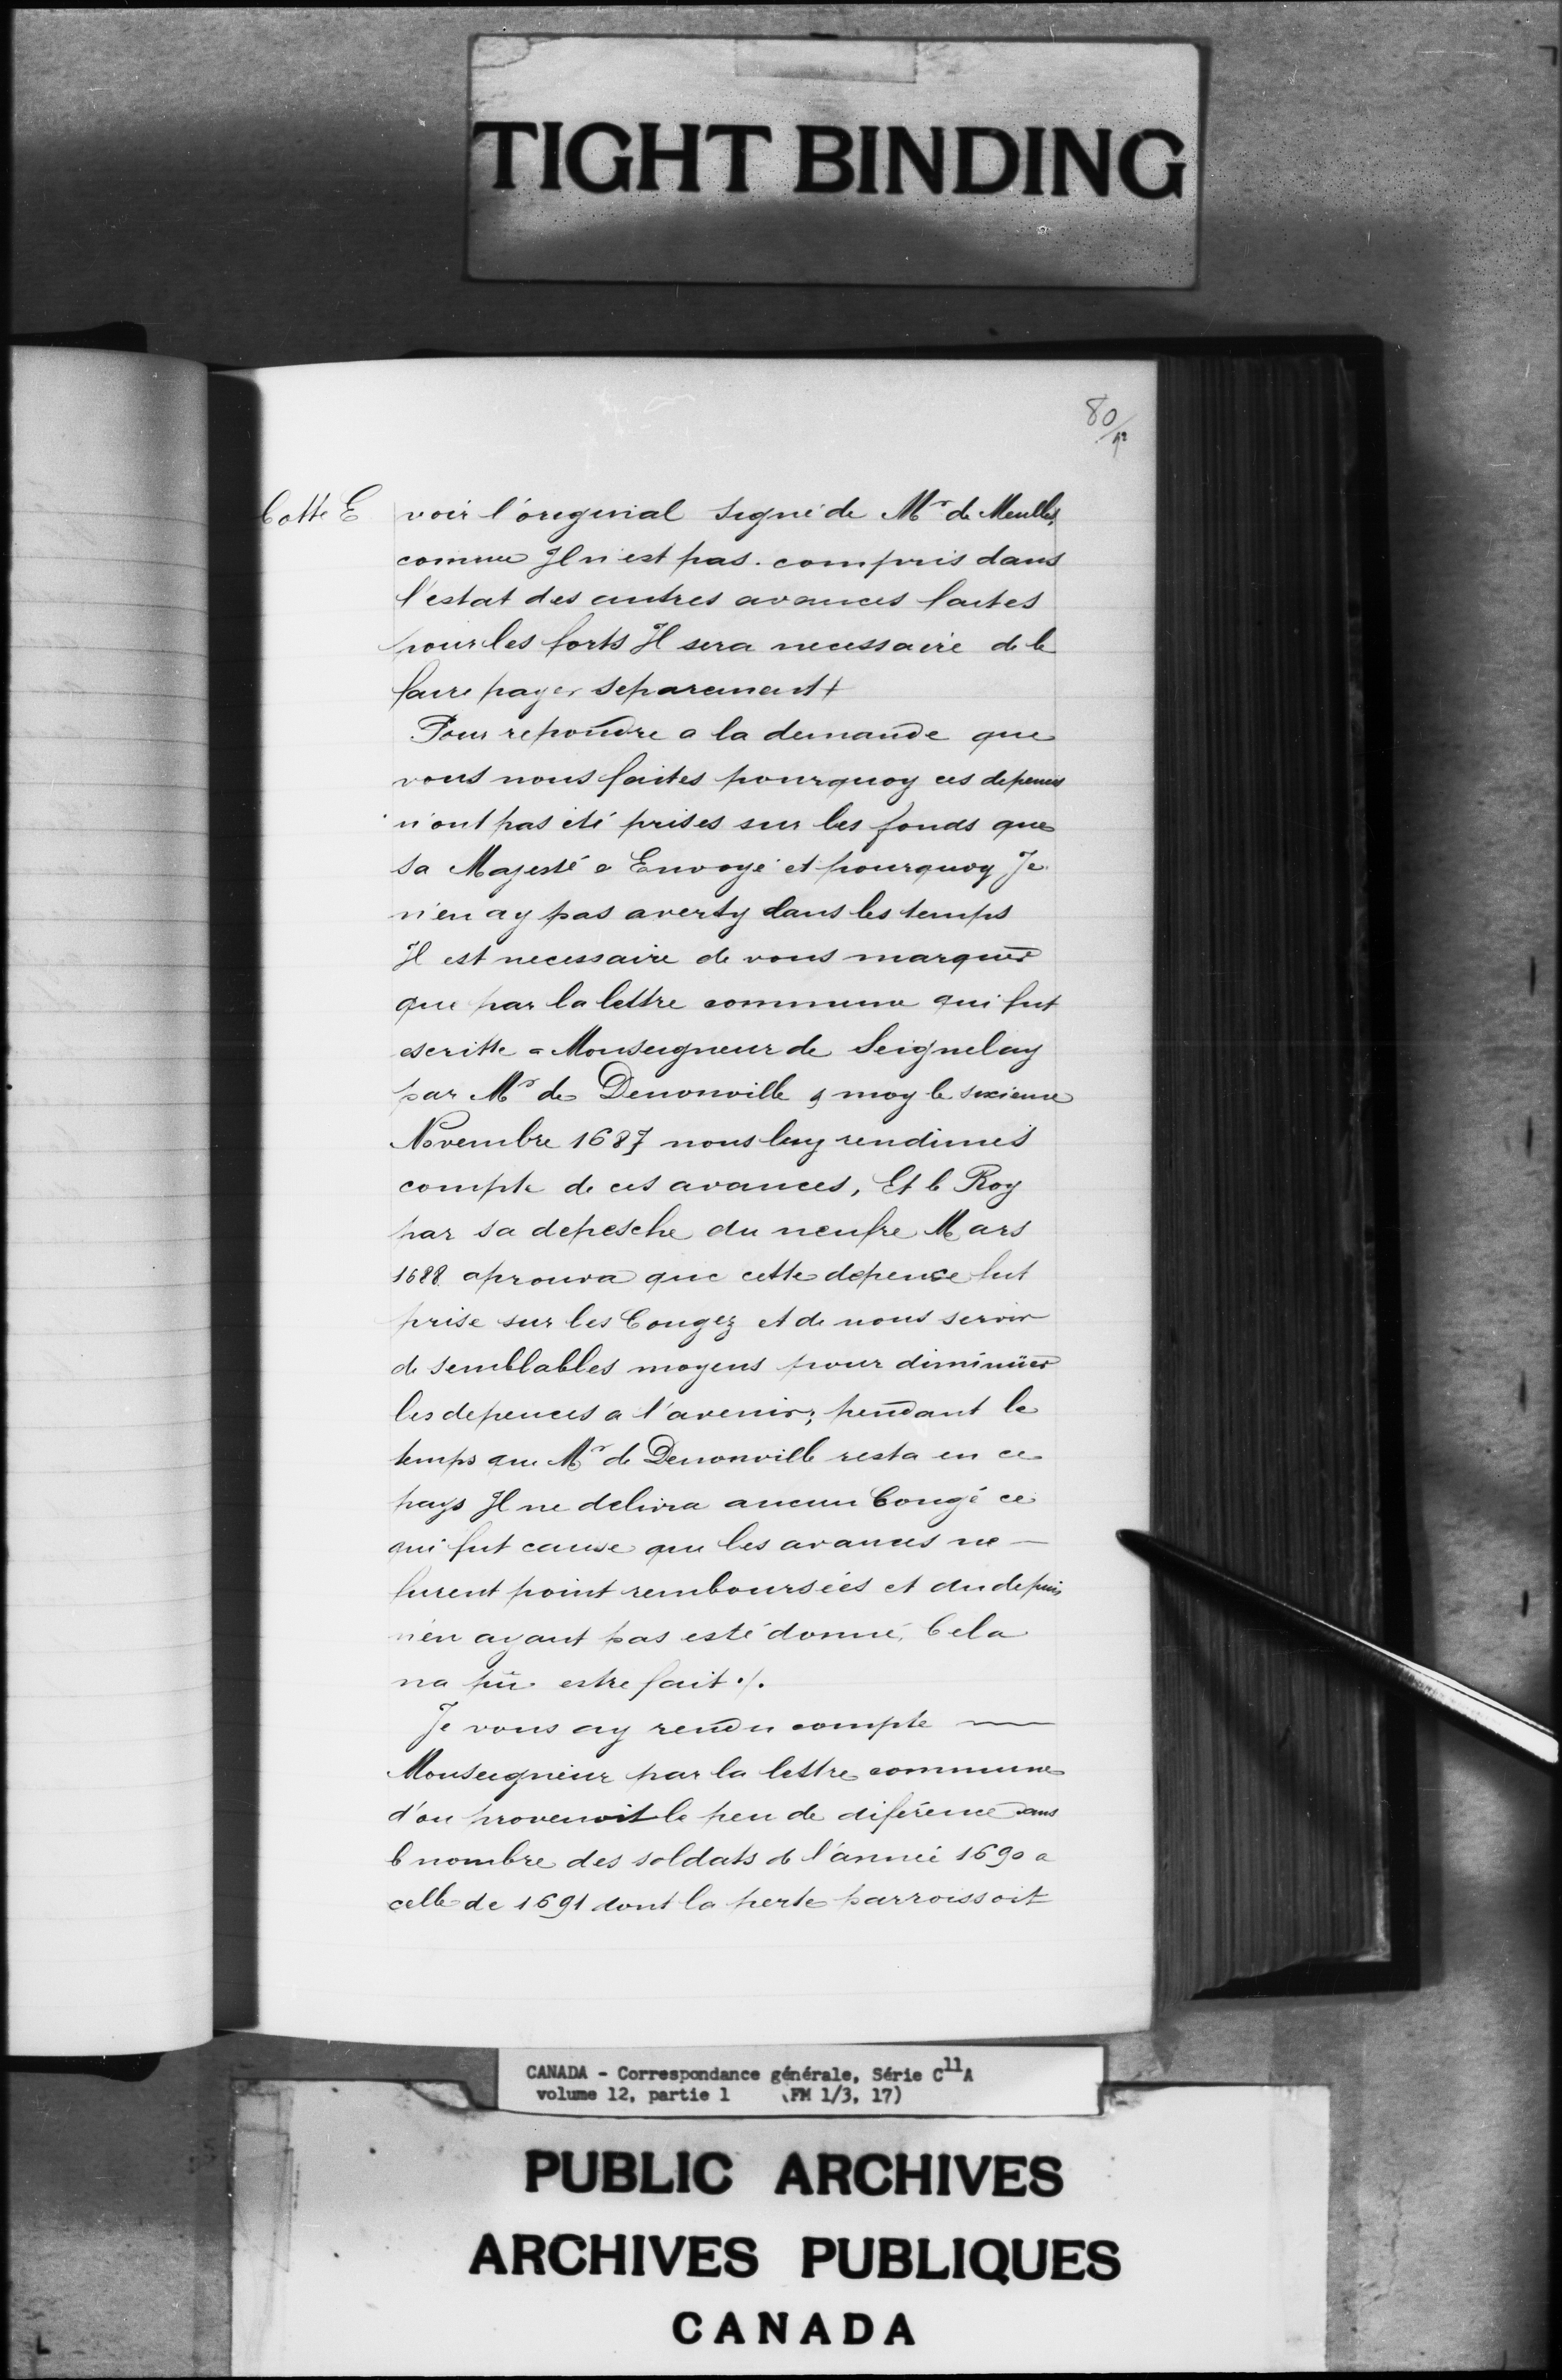 TIGHT BINDING
80
Cotte E voir l'original signé de Mr de Meulles,
comme Il n'est pas compris dans
l'estat des autres avances faites
pour les forts Il sera necessaire de le
faire payer separement
Pour repondre a la demande que
vous nous faites pourquoy ces depences
n'ont pas eté prises sur les fonds que
sa Majesté a Envoyé et pourquoy Je
n'en ay pas averty dans les temps
Il est necessaire de vous marquer
que par la lettre commune qui fut
escritte a Monseigneur de Seignelay
par Mr de Denonville & moy le sixieme
Novembre 1687 nous luy rendimes
compte de ces avances, Et le Roy
par sa depesche du neufre Mars
1688 aprouva que cette depence fut
prise sur les Congez et de nous servir
de semblables moyens pour diminüer
les depences a l'avenir; pendant le
temps que Mr de Denonville resta en ce
pays Il ne delivra aucun Congé ce
qui fut cause que les avances ne —
furent point remboursées et du depuis
n'en ayant pas esté donné, Cela
na pü estre fait ./.
Je vous ay rendu compte —
Monseigneur par la lettre commune
d'ou provenoit le peu de diférence dans
le nombre des soldats de l'année 1690 a
celle de 1691 dont la perte parroissoit
CANADA - Correspondance générale, Série C11A
volume 12, partie 1 (FM 1/3, 17)
PUBLIC ARCHIVES
ARCHIVES PUBLIQUES
CANADA